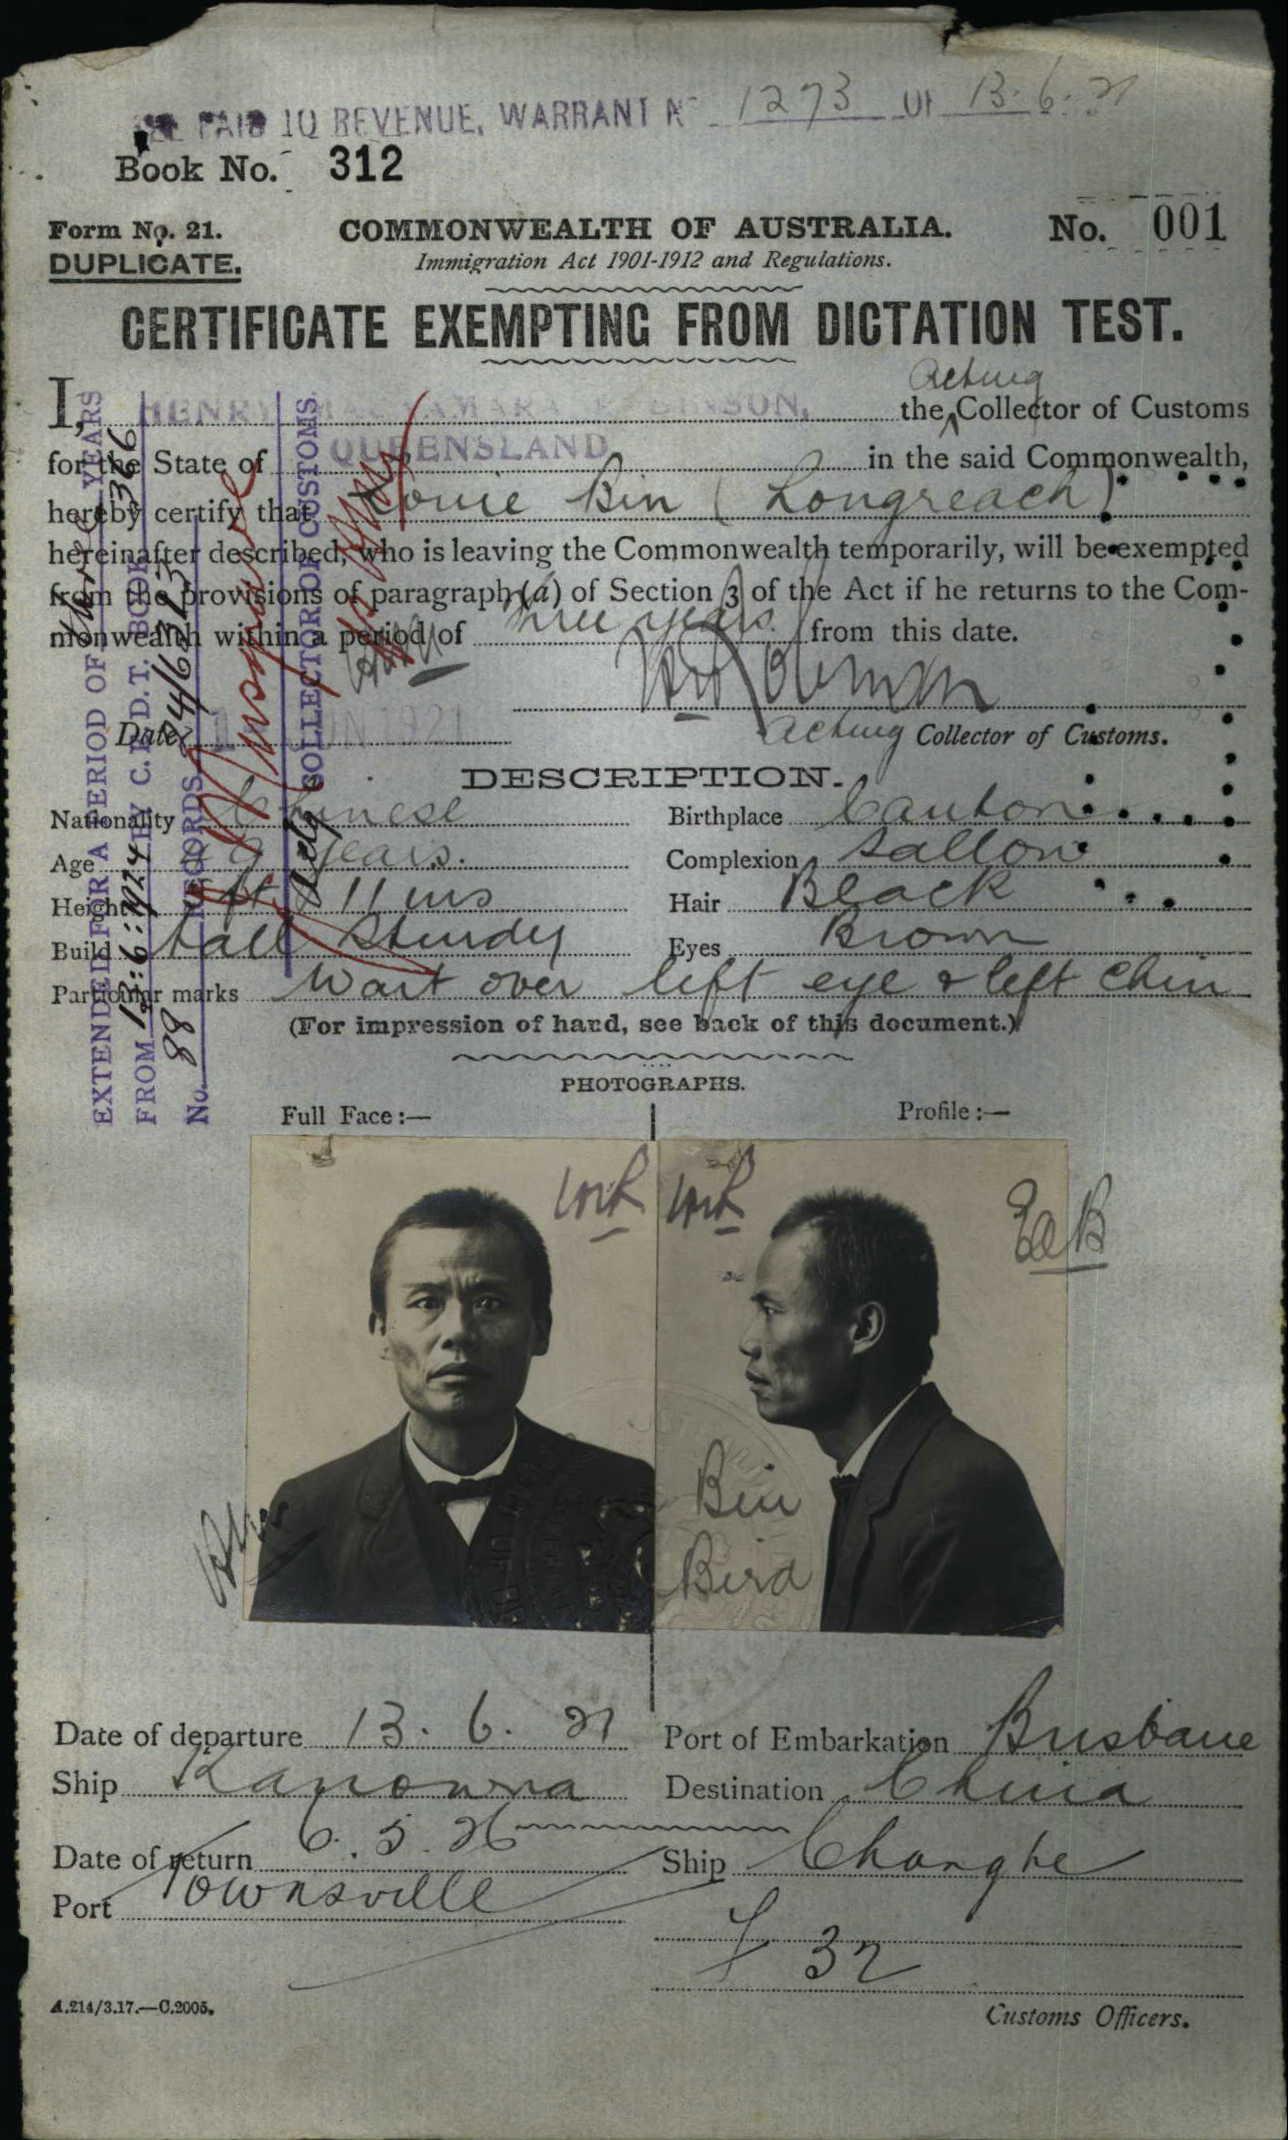 PAID TO REVENUE, WARRANT No 1273 OF 13.6.21
Book No. 312
Form No. 21.
DUPLICATE.
COMMONWEALTH OF AUSTRALIA.
No. 001
Immigration Act 1901-1912 and Regulations.
CERTIFICATE EXEMPTING FROM DICTATION TEST.
I, HENRY the Acting Collector of Customs
for the State of QUEENSLAND in the said Commonwealth,
hereby certify that Louie Bin (Longreach)
hereinafter described, who is leaving the Commonwealth temporarily, will be exempted
from the provisions of paragraph (a) of Section 3 of the Act if he returns to the Com-
monwealth within a period of three years from this date.
Date JUN 1921
Acting Collector of Customs.
EXTENDED FOR A PERIOD OF three YEARS
FROM 13:6:1924 BY C.E.D.T. BOOK 366
No. 88 RECORDS 24/6323
Actg COLLECTOR OF CUSTOMS.
DESCRIPTION.
Nationality Chinese
Birthplace Canton
Age years.
Complexion Sallow
Height 5 ft 11 ins
Hair Black
Build tall sturdy
Eyes Brown
Particular marks Wart over left eye & left chin
(For impression of hand, see back of this document.)
PHOTOGRAPHS.
Full Face :—
Profile :—
Bin
Bird
Date of departure 13.6.21
Port of Embarkation Brisbane
Ship Kanowna
Destination China
Date of return 6.5.26
Ship Changte
Port Townsville
32
A.214/3.17.—C.2005.
Customs Officers.